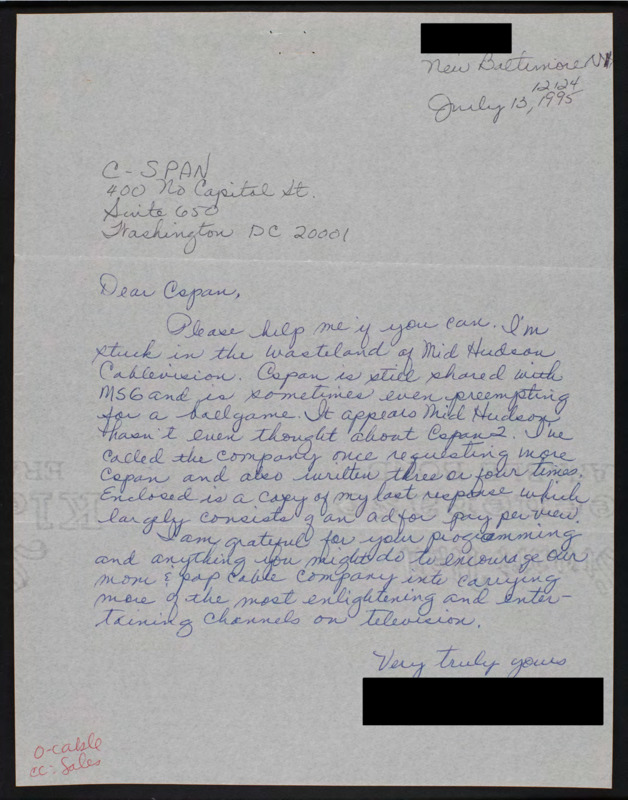 New Baltimore NY
12124
July 13, 1995
C-SPAN
400 No Capitol St.
Suite 650
Washington DC 20001
Dear Cspan,
Please help me if you can. I'm
stuck in the wasteland of Mid Hudson
Cablevision. Cspan is still shared with
MSG and is sometimes even preempting
for a ballgame. It appears Mid Hudson
hasn't even thought about Cspan 2. I've
called the company once requesting more
Cspan and also written three or four times.
Enclosed is a copy of my last response which
largely consists of an ad for pay per view.
I am grateful for your programming
and anything you might do to encourage our
mom & pop cable company into carrying
more of the most enlightening and enter-
taining channels on television.
Very truly yours
O-cable
cc: Sales